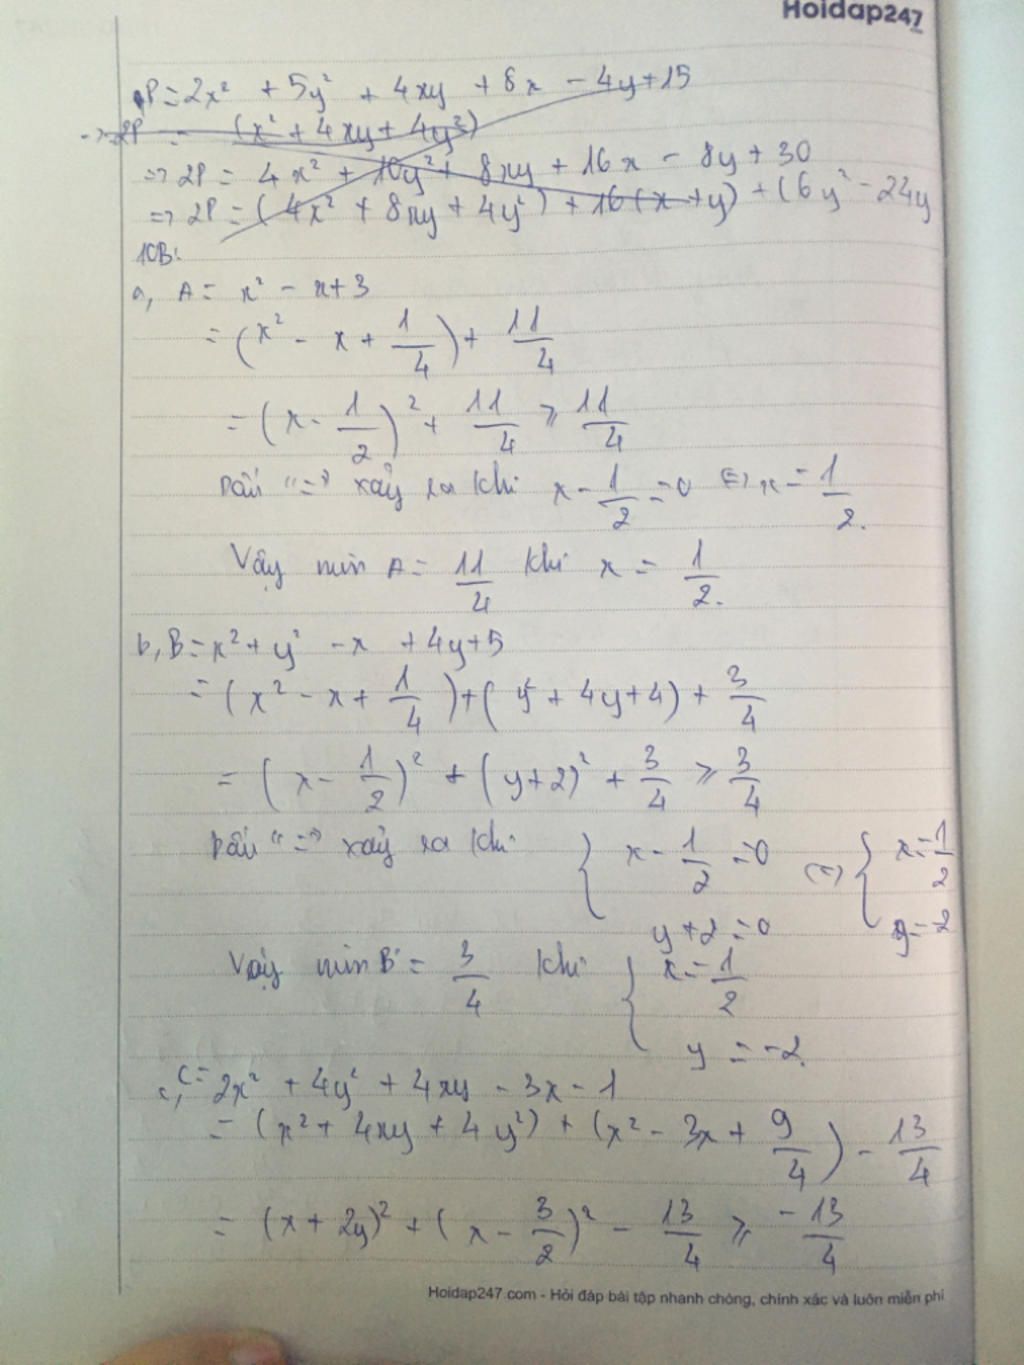 Hoidap247
P = 2x² + 5y² + 4xy + 8x - 4y + 15
=> 2P = (x² + 4xy + 4y²)
=> 2P = 4x² + 10y² + 8xy + 16x - 8y + 30
=> 2P = (4x² + 8xy + 4y²) + 16(x + y) + (6y² - 24y
10B:
a, A = x² - x + 3
= (x² - x + 1/4) + 11/4
= (x - 1/2)² + 11/4 ≥ 11/4
Dấu "=" xảy ra khi x - 1/2 = 0 <=> x = 1/2.
Vậy min A = 11/4 khi x = 1/2.
b, B = x² + y² - x + 4y + 5
= (x² - x + 1/4) + (y² + 4y + 4) + 3/4
= (x - 1/2)² + (y + 2)² + 3/4 ≥ 3/4
Dấu "=" xảy ra khi { x - 1/2 = 0 (=) { x = 1/2
y + 2 = 0 y = -2
Vậy min B = 3/4 khi { x = 1/2
y = -2.
c, C = 2x² + 4y² + 4xy - 3x - 1
= (x² + 4xy + 4y²) + (x² - 3x + 9/4) - 13/4
= (x + 2y)² + (x - 3/2)² - 13/4 ≥ -13/4
Hoidap247.com - Hỏi đáp bài tập nhanh chóng, chính xác và luôn miễn phí